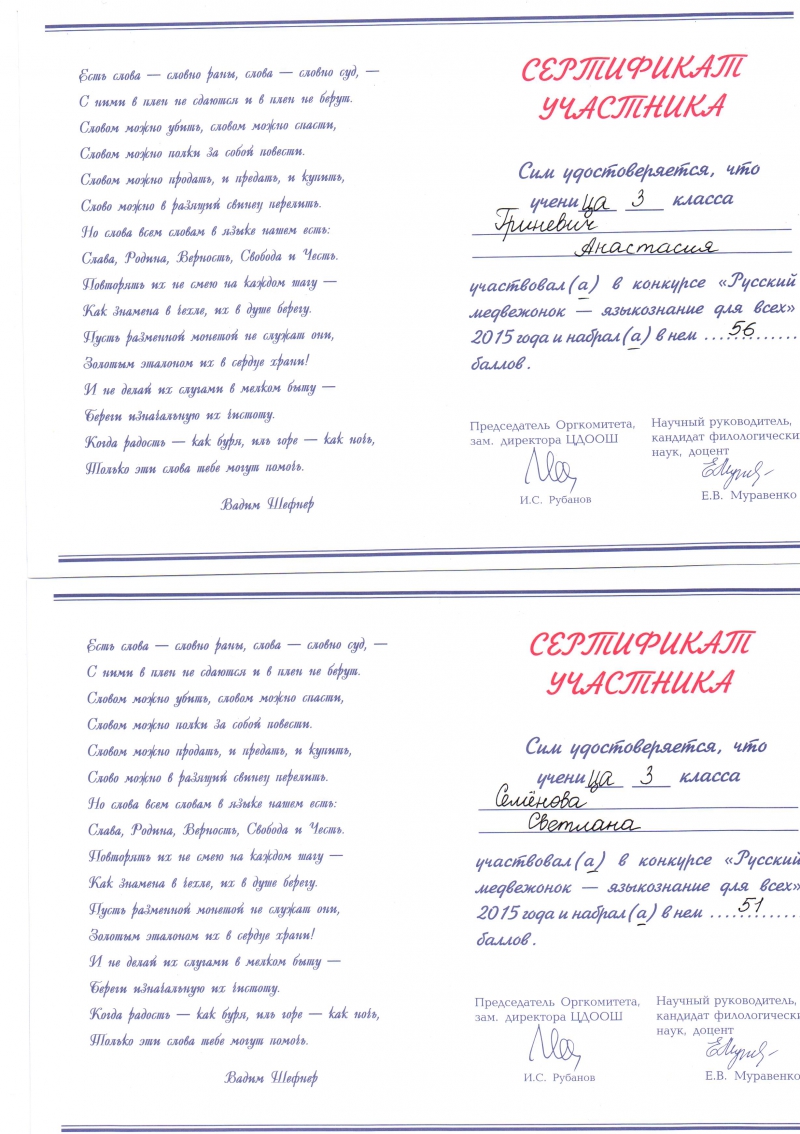 Есть слова — словно раны, слова — словно суд, —
С ними в плен не сдаются и в плен не берут.
Словом можно убить, словом можно спасти,
Словом можно полки за собой повести.
Словом можно продать, и предать, и купить,
Слово можно в разящий свинец перелить.
Но слова всем словам в языке нашем есть:
Слава, Родина, Верность, Свобода и Честь.
Повторять их не смею на каждом шагу —
Как знамена в чехле, их в душе берегу.
Пусть разменной монетой не служат они,
Золотым эталоном их в сердце храни!
И не делай их слугами в мелком быту —
Береги изначальную их чистоту.
Когда радость — как буря, иль горе — как ночь,
Только эти слова тебе могут помочь.
Вадим Шефнер
СЕРТИФИКАТ
УЧАСТНИКА
Сим удостоверяется, что
учени ца 3 класса
Гриневич
Анастасия
участвовал(а) в конкурсе «Русский
медвежонок — языкознание для всех»
2015 года и набрал(а) в нем ....56........
баллов.
Председатель Оргкомитета,
зам. директора ЦДООШ
И.С. Рубанов
Научный руководитель,
кандидат филологически
наук, доцент
Е.В. Муравенко
Есть слова — словно раны, слова — словно суд, —
С ними в плен не сдаются и в плен не берут.
Словом можно убить, словом можно спасти,
Словом можно полки за собой повести.
Словом можно продать, и предать, и купить,
Слово можно в разящий свинец перелить.
Но слова всем словам в языке нашем есть:
Слава, Родина, Верность, Свобода и Честь.
Повторять их не смею на каждом шагу —
Как знамена в чехле, их в душе берегу.
Пусть разменной монетой не служат они,
Золотым эталоном их в сердце храни!
И не делай их слугами в мелком быту —
Береги изначальную их чистоту.
Когда радость — как буря, иль горе — как ночь,
Только эти слова тебе могут помочь.
Вадим Шефнер
СЕРТИФИКАТ
УЧАСТНИКА
Сим удостоверяется, что
учени ца 3 класса
Семёнова
Светлана
участвовал(а) в конкурсе «Русский
медвежонок — языкознание для всех»
2015 года и набрал(а) в нем ....51........
баллов.
Председатель Оргкомитета,
зам. директора ЦДООШ
И.С. Рубанов
Научный руководитель,
кандидат филологически
наук, доцент
Е.В. Муравенко